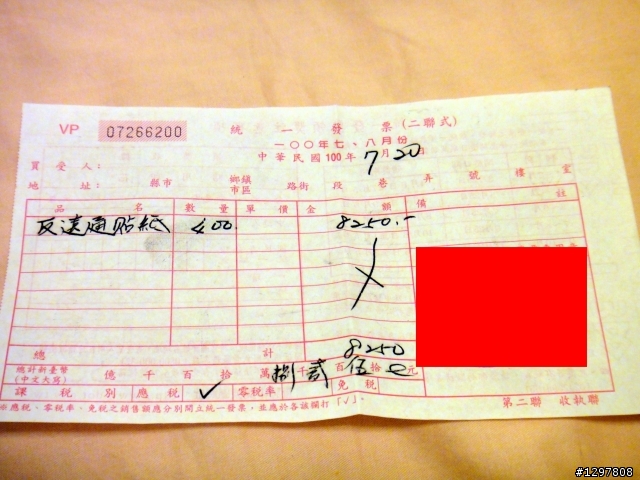 VP 07266200 統一發票(二聯式)
一〇〇年七、八月份
中華民國100年7月20日
買受人:
地址: 縣市 鄉鎮市區 路街 段 巷 弄 號 樓 室
品名 數量 單價 金額 備註
反遠通貼紙 400. 8250.-
總計 8250
總計新臺幣(中文大寫) 億 千 百 十 萬 捌 千 貳 百 伍 拾 0 元
課稅別 應稅 ✓ 零稅率 免稅
※應稅、零稅率、免稅之銷售額應分別開立統一發票,並應於各該欄打「✓」。
第二聯 收執聯
#1297808